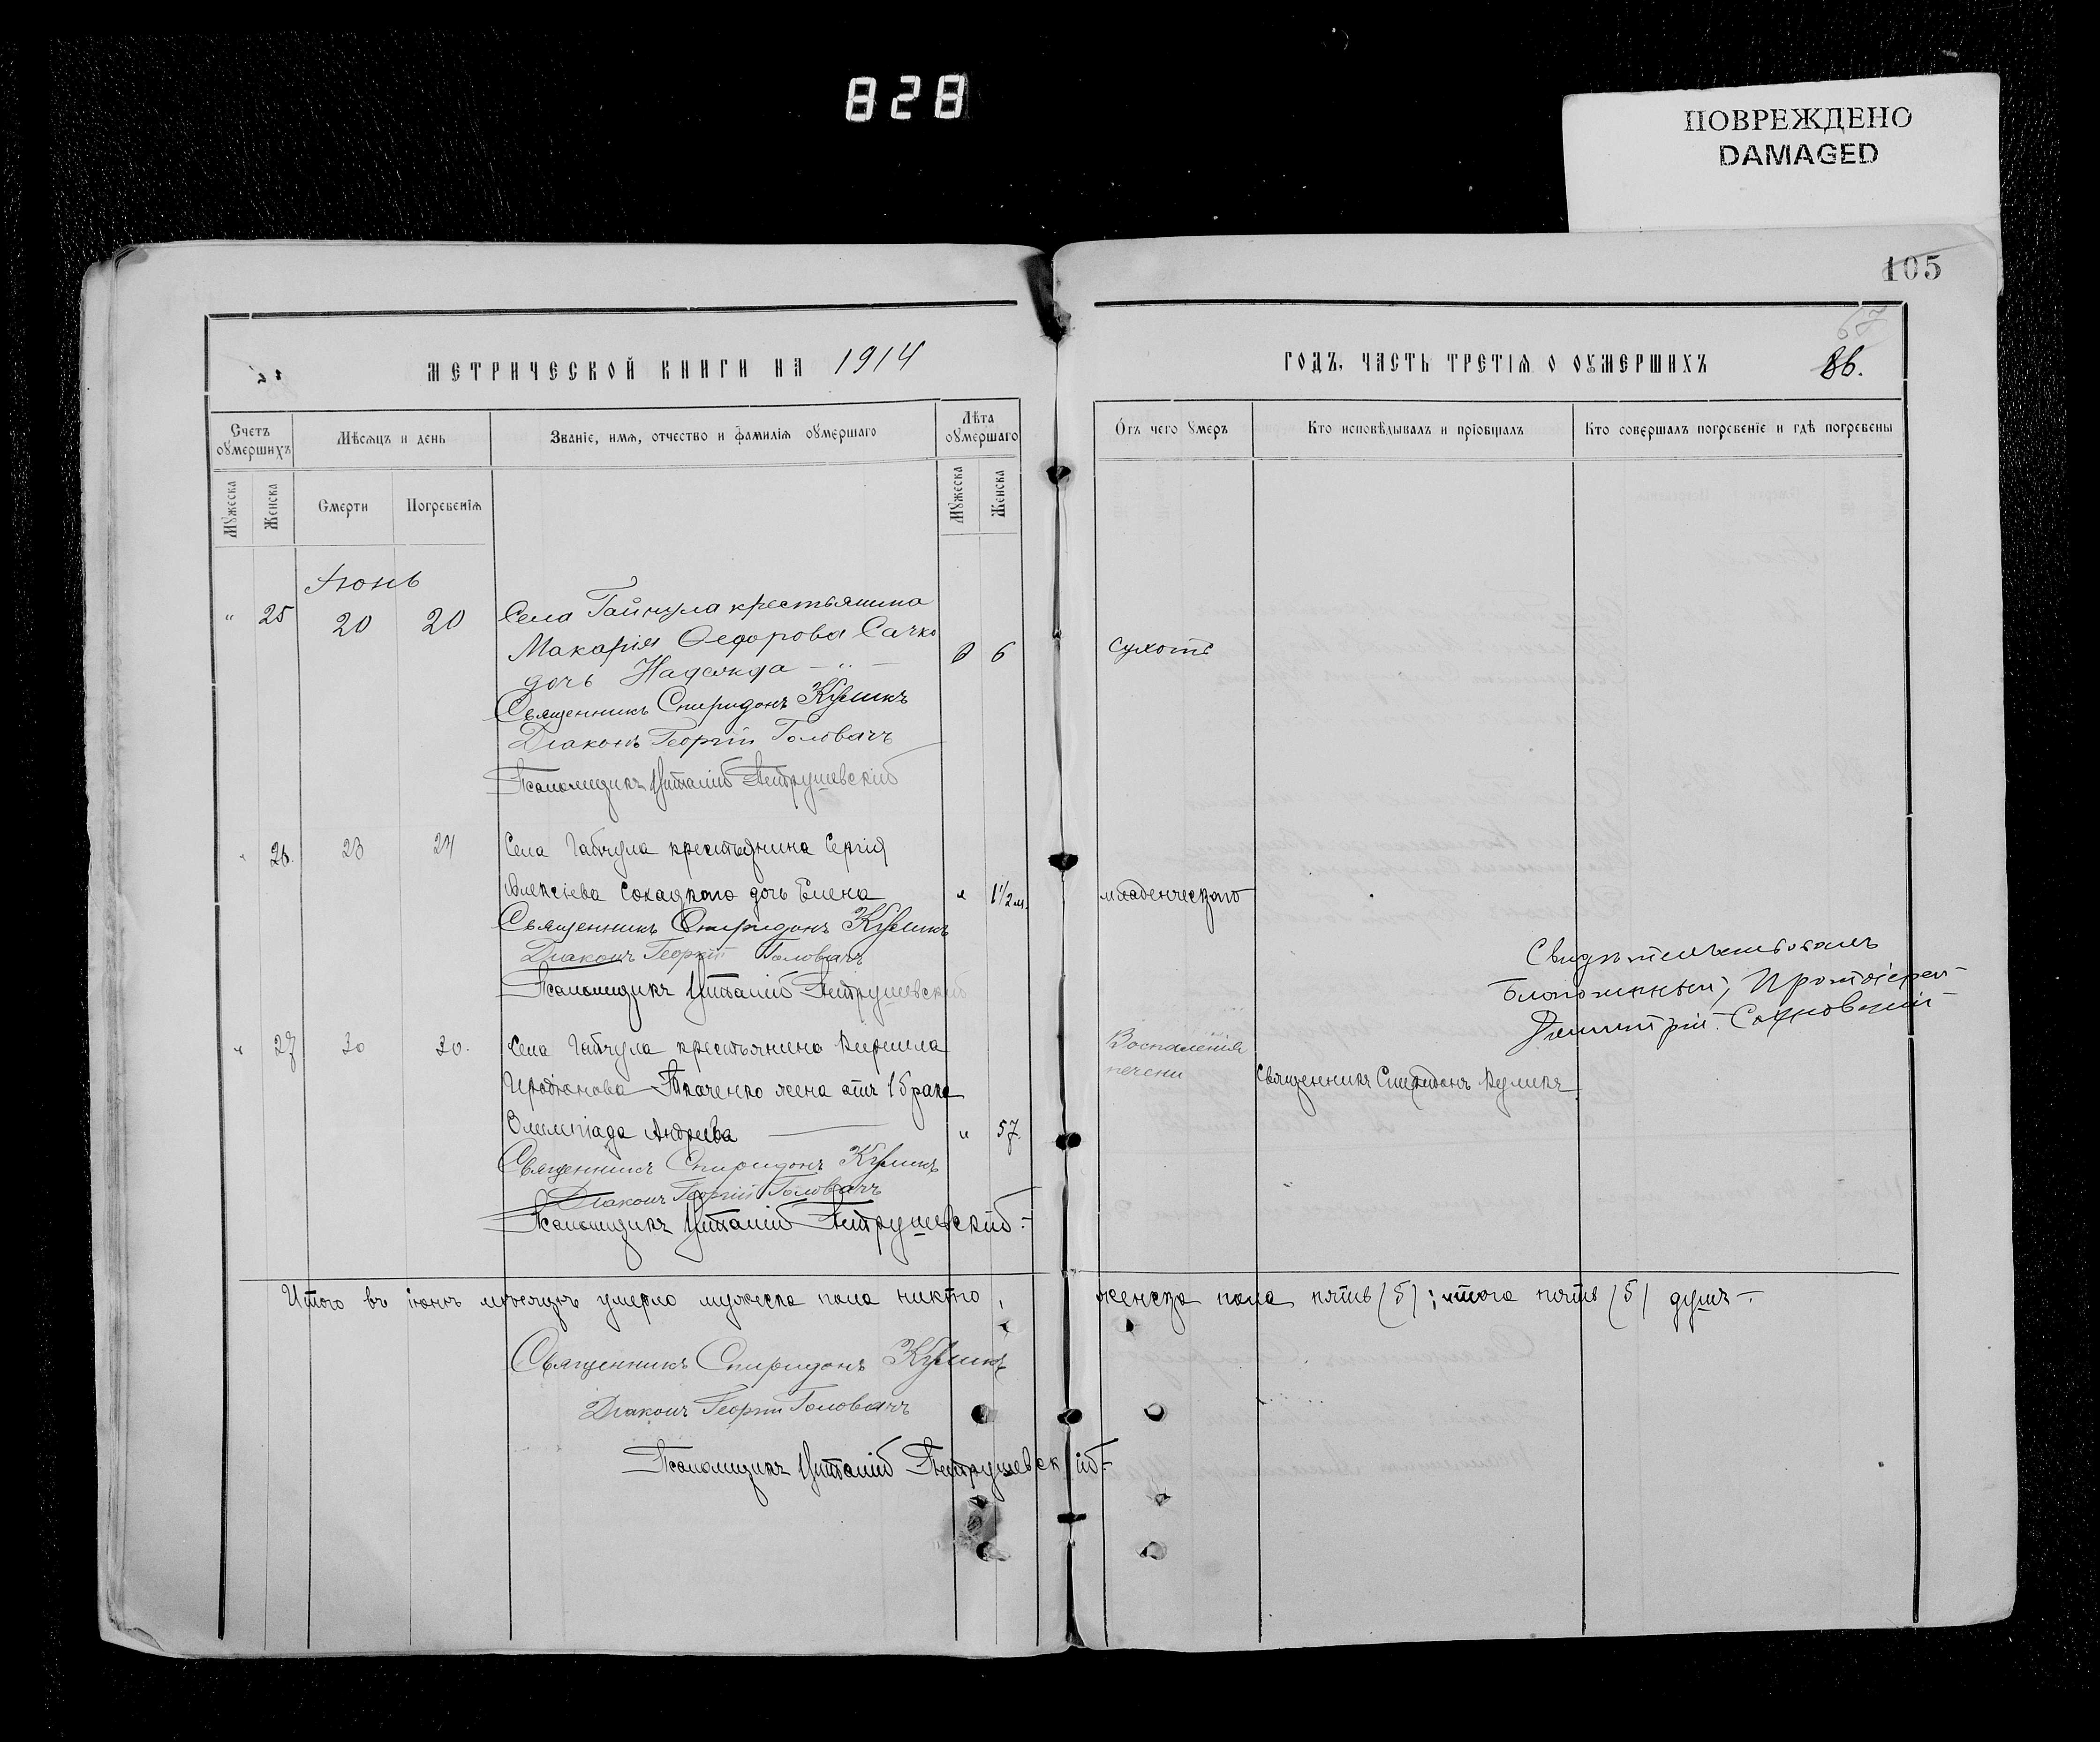 828
ПОВРЕЖДЕНО
DAMAGED
105
67
МЕТРИЧЕСКОЙ КНИГИ НА 1914
ГОДЪ, ЧАСТЬ ТРЕТІѦ О ОУМЕРШИХЪ
86.
Счетъ оумершихъ
Мѣсѧцъ и день
Званіе, имѧ, отчество и фамиліѧ оумершаго
Лѣта оумершаго
Отъ чего умеръ
Кто исповѣдывалъ и пріобщалъ
Кто совершалъ погребеніе и гдѣ погребены
Мужеска
Женска
Смерти
Погребеніѧ
Мужеска
Женска
Іюнь
" 25 20 20 Села Гайчула крестьянина
Макарія Ѳедорова Сачко 6 сухоты
дочь Надежда — " —
Священникъ Спиридонъ Куликъ
Діаконъ Георгій Головачъ
Псаломщикъ Виталій Петрушевскій
" 26. 23 24 Села Гайчула крестьянина Сергія
Алексіева Сокацкого дочь Елена " 1 1/2 м. младенческаго
Священникъ Спиридонъ Куликъ
Діаконъ Георгій Головачъ
Псаломщикъ Виталій Петрушевскій
Свидѣтельствовалъ
Благочинный, Протоіерей
Димитрій
" 27 30 30. Села Гайчула крестьянина Кирилла Воспаленія
печени
Иродіонова Ткаченко жена отъ 1 брака Священникъ Спиридонъ Куликъ
Олимпіада Андреева " 57.
Священникъ Спиридонъ Куликъ
Діаконъ Георгій Головачъ
Псаломщикъ Виталій Петрушевскій
Итого въ іюнѣ мѣсяцѣ умерло мужеска пола никто, женска пола пять (5); итого пять (5) душъ
Священникъ Спиридонъ Куликъ
Діаконъ Георгій Головачъ
Псаломщикъ Виталій Петрушевскій